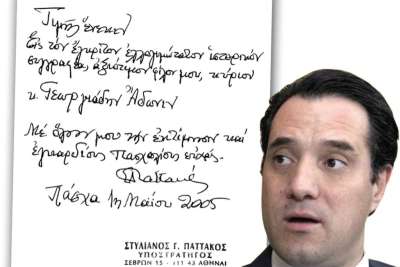 Τιμῆς ἕνεκεν
Εἰς τόν ἔγκριτον ἐλλογιμώτατον ἱστορικόν
συγγραφέα, ἀξιότιμον φίλον μου, κύριον
κ. Γεωργιάδην Ἄδωνιν
Μέ ὅλην μου τήν ἐκτίμησιν καί
ἐγκαρδίους Πασχαλίους εὐχάς.
Παττακός
Πάσχα 1η Μαΐου 2005
ΣΤΥΛΙΑΝΟΣ Γ. ΠΑΤΤΑΚΟΣ
ΥΠΟΣΤΡΑΤΗΓΟΣ
ΣΕΒΡΩΝ 15 - 111 43 ΑΘΗΝΑΙ